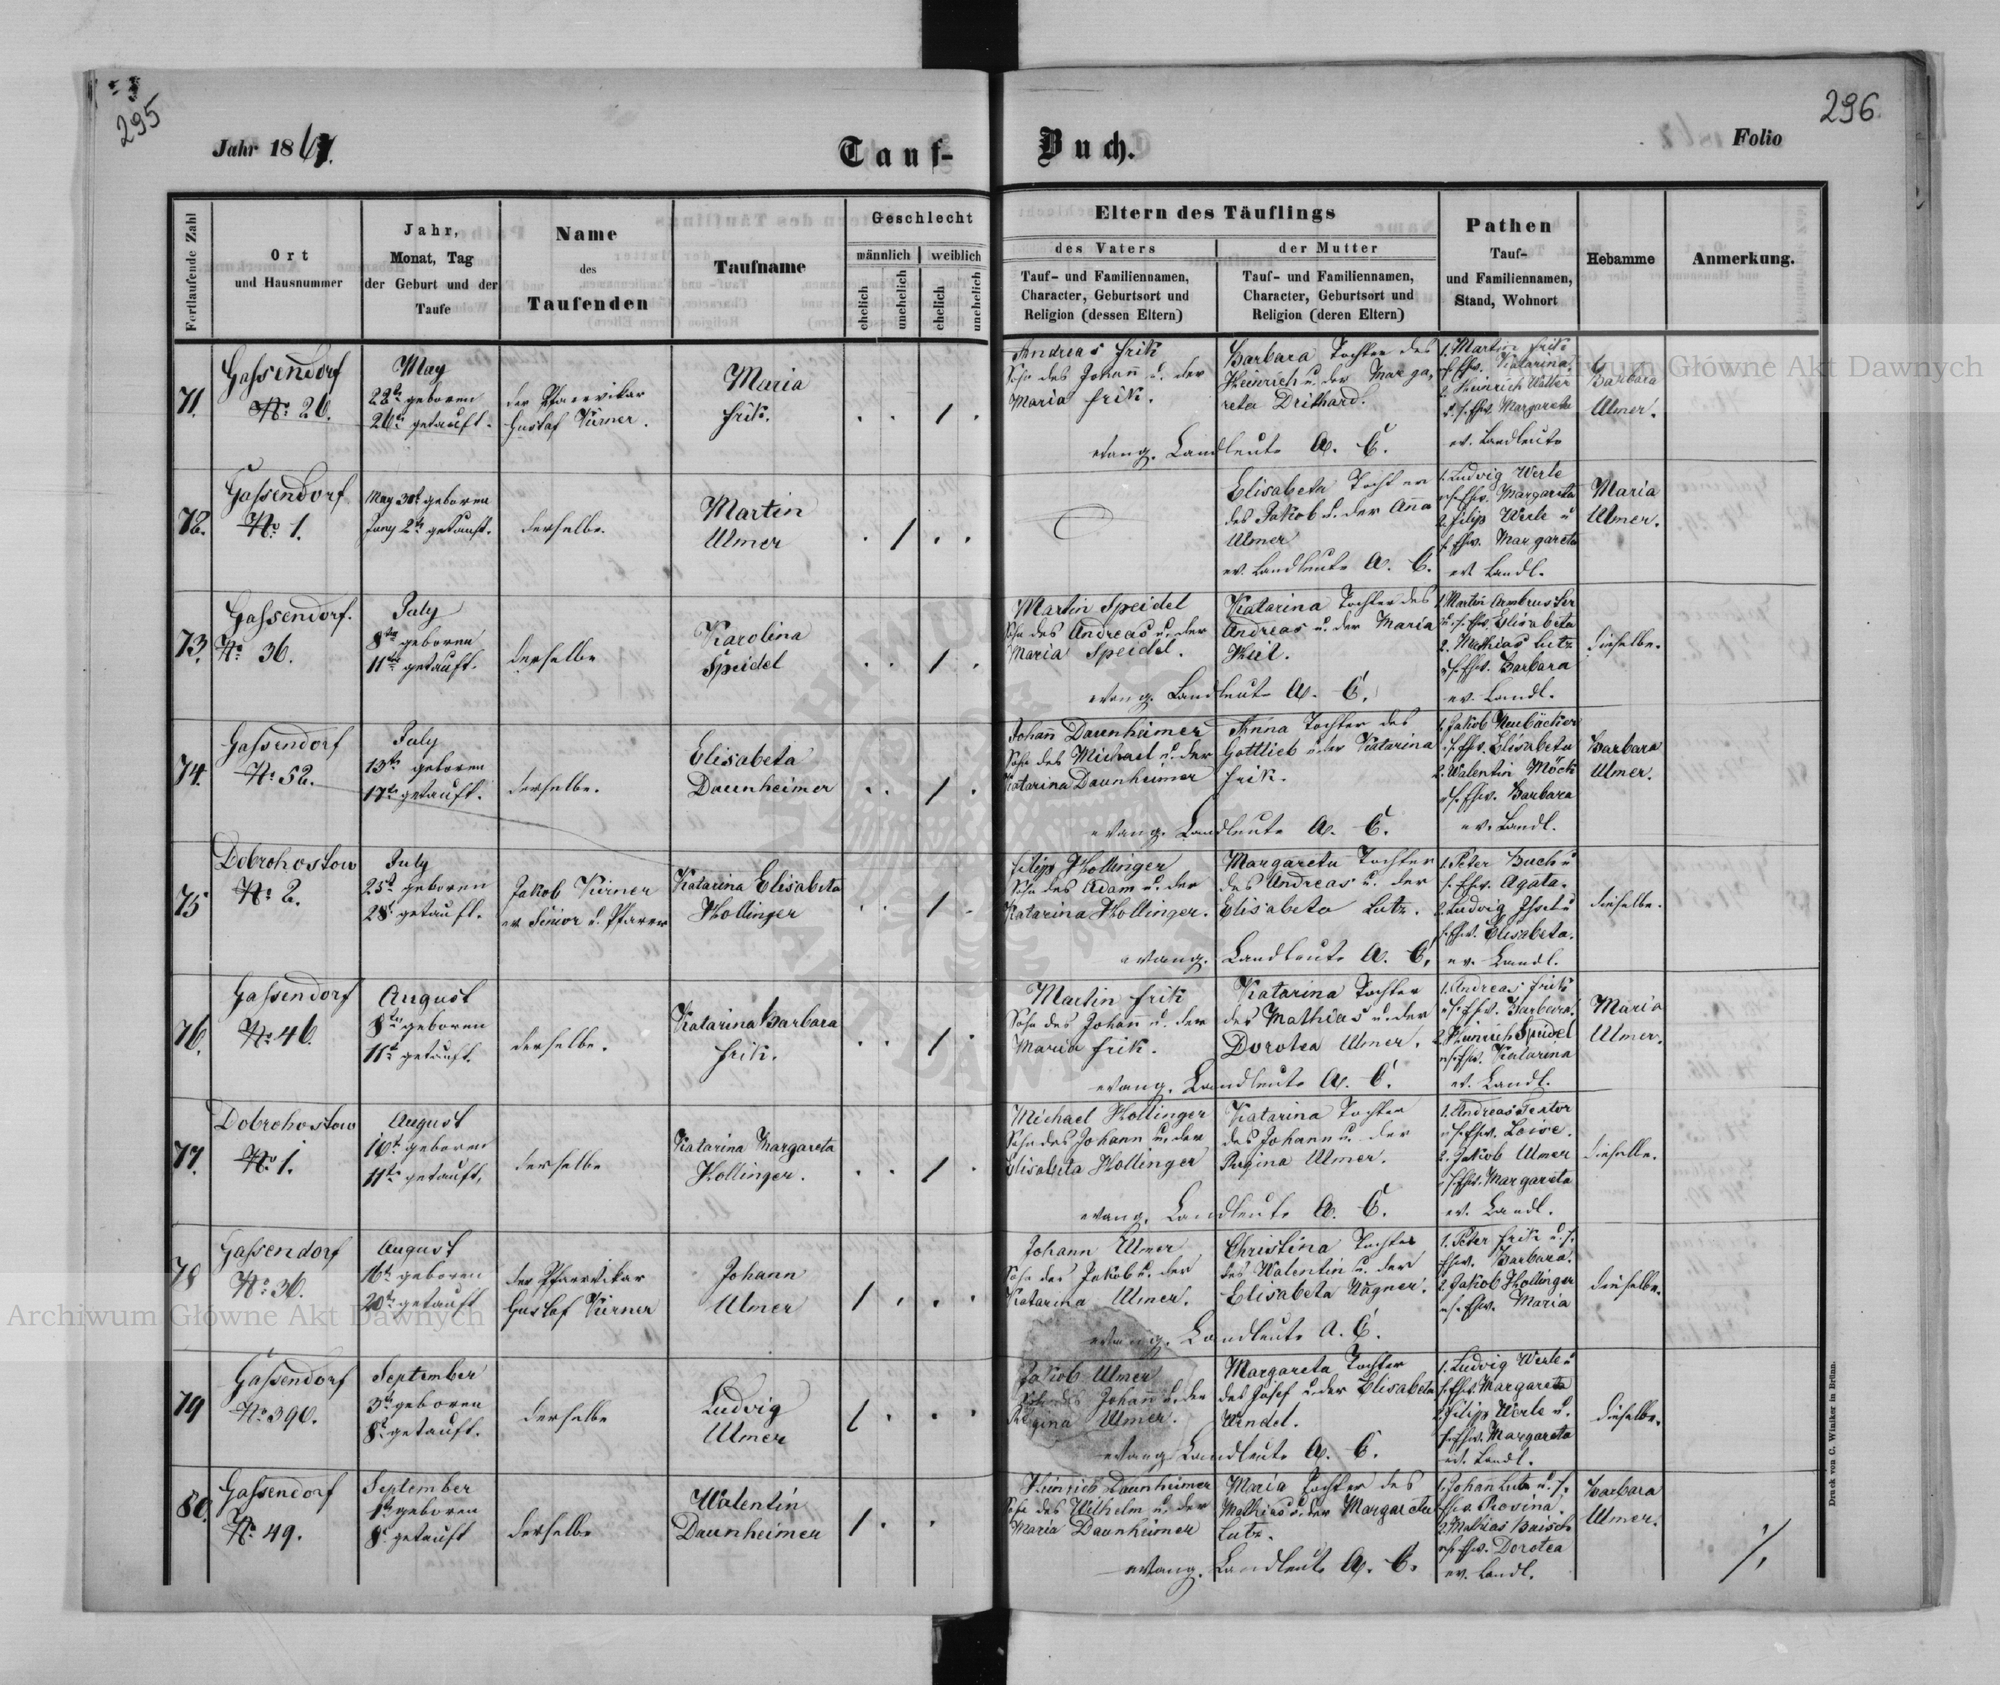 295
296.
Jahr 1867.
Tauf-
Buch.
Folio
Fortlaufende Zahl
Ort
und Hausnummer
Jahr,
Monat, Tag
der Geburt und der
Taufe
Name
des
Taufenden
Taufname
Geschlecht
männlich
weiblich
ehelich
unehelich
ehelich
unehelich
Eltern des Täuflings
des Vaters
Tauf- und Familiennamen,
Character, Geburtsort und
Religion (dessen Eltern)
der Mutter
Tauf- und Familiennamen,
Character, Geburtsort und
Religion (deren Eltern)
Pathen
Tauf-
und Familiennamen,
Stand, Wohnort
Hebamme
Anmerkung.
71.
Gassendorf
No. 26.
May
22ten geboren
26ten getauft.
der Pfarrvikar
Gustaf
Maria
Frik.
Andreas Frik
Sohn des Johann u. der
Maria Frik.
Barbara Tochter des
Heinrich u. der Marga,
reta
evang. Landleute A. C.
1. Martin Frik
Katarina.
2. Heinrich
Margareta
ev. Landleute
Barbara
Ulmer.
72.
Gassendorf
No. 1.
May 30t geboren
Juny 2ten getauft.
derselbe.
Martin
Ulmer
Elisabeta Tochter
des Jakob u. der Anna
Ulmer
ev. Landleute A. C.
1. Ludvig Werle
Margareta
2. Filip Werle u
s. Ehw. Margareta
ev. Landl.
Maria
Ulmer.
73.
Gassendorf.
No. 36.
July
8ten geboren
11ten getauft.
derselbe
Karolina
Speidel
Martin Speidel
Sohn des Andreas u. der
Maria Speidel.
Katarina Tochter des
Andreas u. der Maria
evang. Landleute A. C.
1. Martin Armbruster
u. s. Ehw. Elisabeta
2. Mathias Lutz
Barbara
ev. Landl.
dieselbe.
74.
Gassendorf
No. 52.
July
13ten geboren
17ten getauft.
derselbe.
Elisabeta
Daunheimer
Johann Daunheimer
Sohn des Michael u. der
Katarina Daunheimer
Anna Tochter des
Gottlieb u. der Katarina
Frik.
evang. Landleute A. C.
1. Jakob Neubäcker
s. Ehw. Elisabeta
2. Walentin Möck
s. Ehw. Barbara
ev. Landl.
Barbara
Ulmer.
75
Dobrohostow
No. 2.
July
25t geboren
28t getauft.
Jakob
ev. Senior u. Pfarrer
Katarina Elisabeta
Hollinger
Filip Hollinger
Sohn des Adam u. der
Katarina Hollinger.
Margareta Tochter
des Andreas u. der
Elisabeta Lutz.
evang. Landleute A. C.
1. Peter Buch u
s. Ehw. Agata.
2. Ludvig
s. Ehw. Elisabeta.
ev. Landl.
dieselbe.
76.
Gassendorf
No. 46.
August
8ten geboren
11t getauft.
derselbe.
Katarina Barbara
Frik.
Martin Frik
Sohn des Johann u. der
Maria Frik.
Katarina Tochter
des Mathias u. der
Dorotea Ulmer.
evang. Landleute A. C.
1. Andreas Frik
u. s. Ehw. Barbara.
2. Heinrich Speidel
u. s. Ehw. Katarina
ev. Landl.
Maria
Ulmer.
77.
Dobrohostow
No. 1.
August
10t geboren
11ten getauft.
derselbe
Katarina Margareta
Hollinger.
Michael Hollinger
Sohn des Johann u. der
Elisabeta Hollinger
Katarina Tochter
des Johann u. der
Regina Ulmer.
evang. Landleute A. C.
1. Andreas Textor
u. s. Ehw. Loise.
2. Jakob Ulmer
s. Ehw. Margareta
ev. Landl.
dieselbe.
78
Gassendorf
No. 30.
August
16t geboren
20t getauft
der Pfarrvikar
Gustaf
Johann
Ulmer
Johann Ulmer
Sohn des Jakob u. der
Katarina Ulmer.
Christina Tochter
des Walentin u. der
Elisabeta Wagner.
evang. Landleute A. C.
1. Peter Frik u. s.
Ehw. Barbara.
2. Jakob Hollinger
u. s. Ehw. Maria
dieselbe.
79
Gassendorf
No. 390.
September
3t geboren
8t getauft.
derselbe
Ludvig
Ulmer
Jakob Ulmer
Sohn des Johann u. der
Regina Ulmer.
Margareta Tochter
des Josef u. der Elisabeta
Wendel.
evang. Landleute A. C.
1. Ludvig Werle u
s. Ehw. Margareta
2. Filip Werle u.
s. Ehw. Margareta
ev. Landl.
dieselbe.
80.
Gassendorf
No. 49.
September
1t geboren
8t getauft
derselbe
Walentin
Daunheimer
Heinrich Daunheimer
Sohn des Wilhelm u. der
Maria Daunheimer
Maria Tochter des
Mathias u. der Margareta
Lutz.
evang. Landleute A. C.
1. Johann Lutz u. s.
Ehw. Rosina.
2. Mathias
u. s. Ehw. Dorotea
ev. Landl.
Barbara
Ulmer.
Druck von C. Winiker in Brünn.
Archiwum Główne Akt Dawnych
Archiwum Główne Akt Dawnych